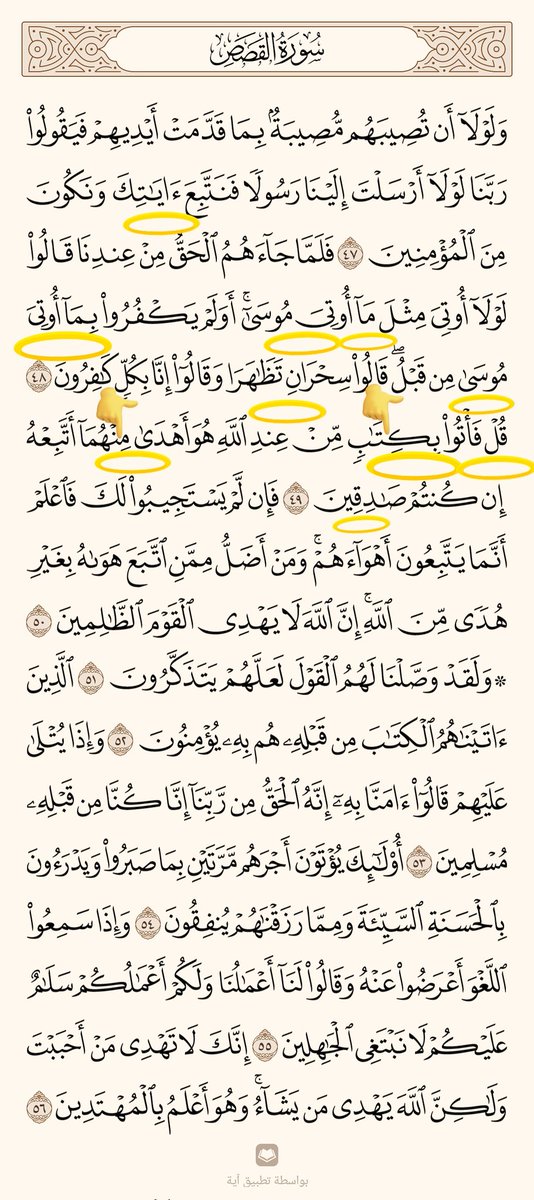 سُورَةُ القَصَصِ
وَلَوْلَآ أَن تُصِيبَهُم مُّصِيبَةُۢ بِمَا قَدَّمَتْ أَيْدِيهِمْ فَيَقُولُوا۟
رَبَّنَا لَوْلَآ أَرْسَلْتَ إِلَيْنَا رَسُولًا فَنَتَّبِعَ ءَايَٰتِكَ وَنَكُونَ
مِنَ ٱلْمُؤْمِنِينَ ٤٧ فَلَمَّا جَآءَهُمُ ٱلْحَقُّ مِنْ عِندِنَا قَالُوا۟
لَوْلَآ أُوتِىَ مِثْلَ مَآ أُوتِىَ مُوسَىٰٓ ۚ أَوَلَمْ يَكْفُرُوا۟ بِمَآ أُوتِىَ
مُوسَىٰ مِن قَبْلُ ۖ قَالُوا۟ سِحْرَانِ تَظَٰهَرَا وَقَالُوٓا۟ إِنَّا بِكُلٍّ كَٰفِرُونَ ٤٨
قُلْ فَأْتُوا۟ بِكِتَٰبٍ مِّنْ عِندِ ٱللَّهِ هُوَ أَهْدَىٰ مِنْهُمَآ أَتَّبِعْهُ
إِن كُنتُمْ صَٰدِقِينَ ٤٩ فَإِن لَّمْ يَسْتَجِيبُوا۟ لَكَ فَٱعْلَمْ
أَنَّمَا يَتَّبِعُونَ أَهْوَآءَهُمْ ۚ وَمَنْ أَضَلُّ مِمَّنِ ٱتَّبَعَ هَوَىٰهُ بِغَيْرِ
هُدًى مِّنَ ٱللَّهِ ۚ إِنَّ ٱللَّهَ لَا يَهْدِى ٱلْقَوْمَ ٱلظَّٰلِمِينَ ٥٠
۞ وَلَقَدْ وَصَّلْنَا لَهُمُ ٱلْقَوْلَ لَعَلَّهُمْ يَتَذَكَّرُونَ ٥١ ٱلَّذِينَ
ءَاتَيْنَٰهُمُ ٱلْكِتَٰبَ مِن قَبْلِهِۦ هُم بِهِۦ يُؤْمِنُونَ ٥٢ وَإِذَا يُتْلَىٰ
عَلَيْهِمْ قَالُوٓا۟ ءَامَنَّا بِهِۦٓ إِنَّهُ ٱلْحَقُّ مِن رَّبِّنَآ إِنَّا كُنَّا مِن قَبْلِهِۦ
مُسْلِمِينَ ٥٣ أُو۟لَٰٓئِكَ يُؤْتَوْنَ أَجْرَهُم مَّرَّتَيْنِ بِمَا صَبَرُوا۟ وَيَدْرَءُونَ
بِٱلْحَسَنَةِ ٱلسَّيِّئَةَ وَمِمَّا رَزَقْنَٰهُمْ يُنفِقُونَ ٥٤ وَإِذَا سَمِعُوا۟
ٱللَّغْوَ أَعْرَضُوا۟ عَنْهُ وَقَالُوا۟ لَنَآ أَعْمَٰلُنَا وَلَكُمْ أَعْمَٰلُكُمْ سَلَٰمٌ
عَلَيْكُمْ لَا نَبْتَغِى ٱلْجَٰهِلِينَ ٥٥ إِنَّكَ لَا تَهْدِى مَنْ أَحْبَبْتَ
وَلَٰكِنَّ ٱللَّهَ يَهْدِى مَن يَشَآءُ ۚ وَهُوَ أَعْلَمُ بِٱلْمُهْتَدِينَ ٥٦
بواسطة تطبيق آية